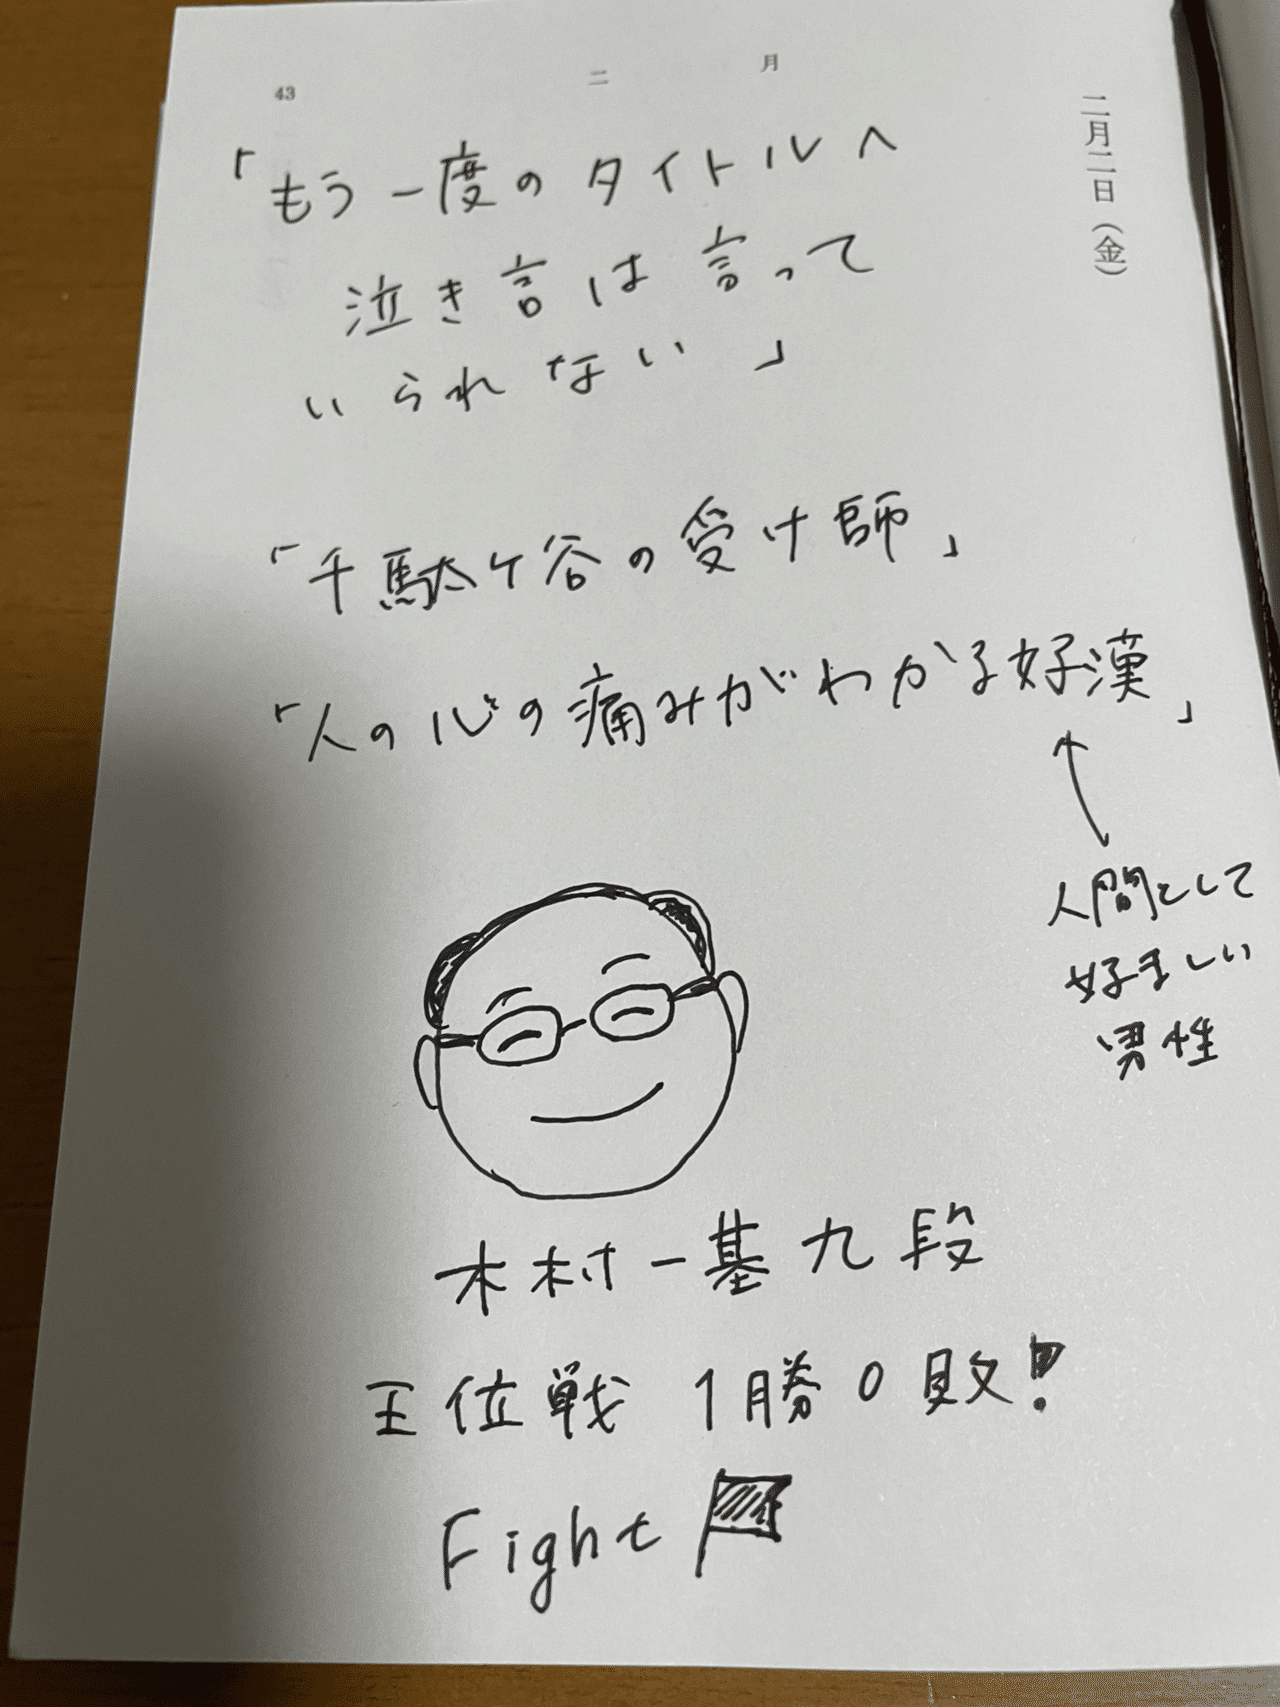 43
二月
二月二日(金)
「もう一度のタイトルへ
泣き言は言って
いられない」
「千駄ケ谷の受け師」
「人の心の痛みがわかる好漢」
人間として
好ましい
男性
木村一基九段
王位戦 1勝0敗!
Fight